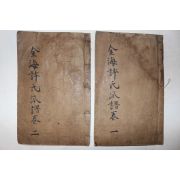 金海許氏派譜卷一
金海許氏派譜卷二